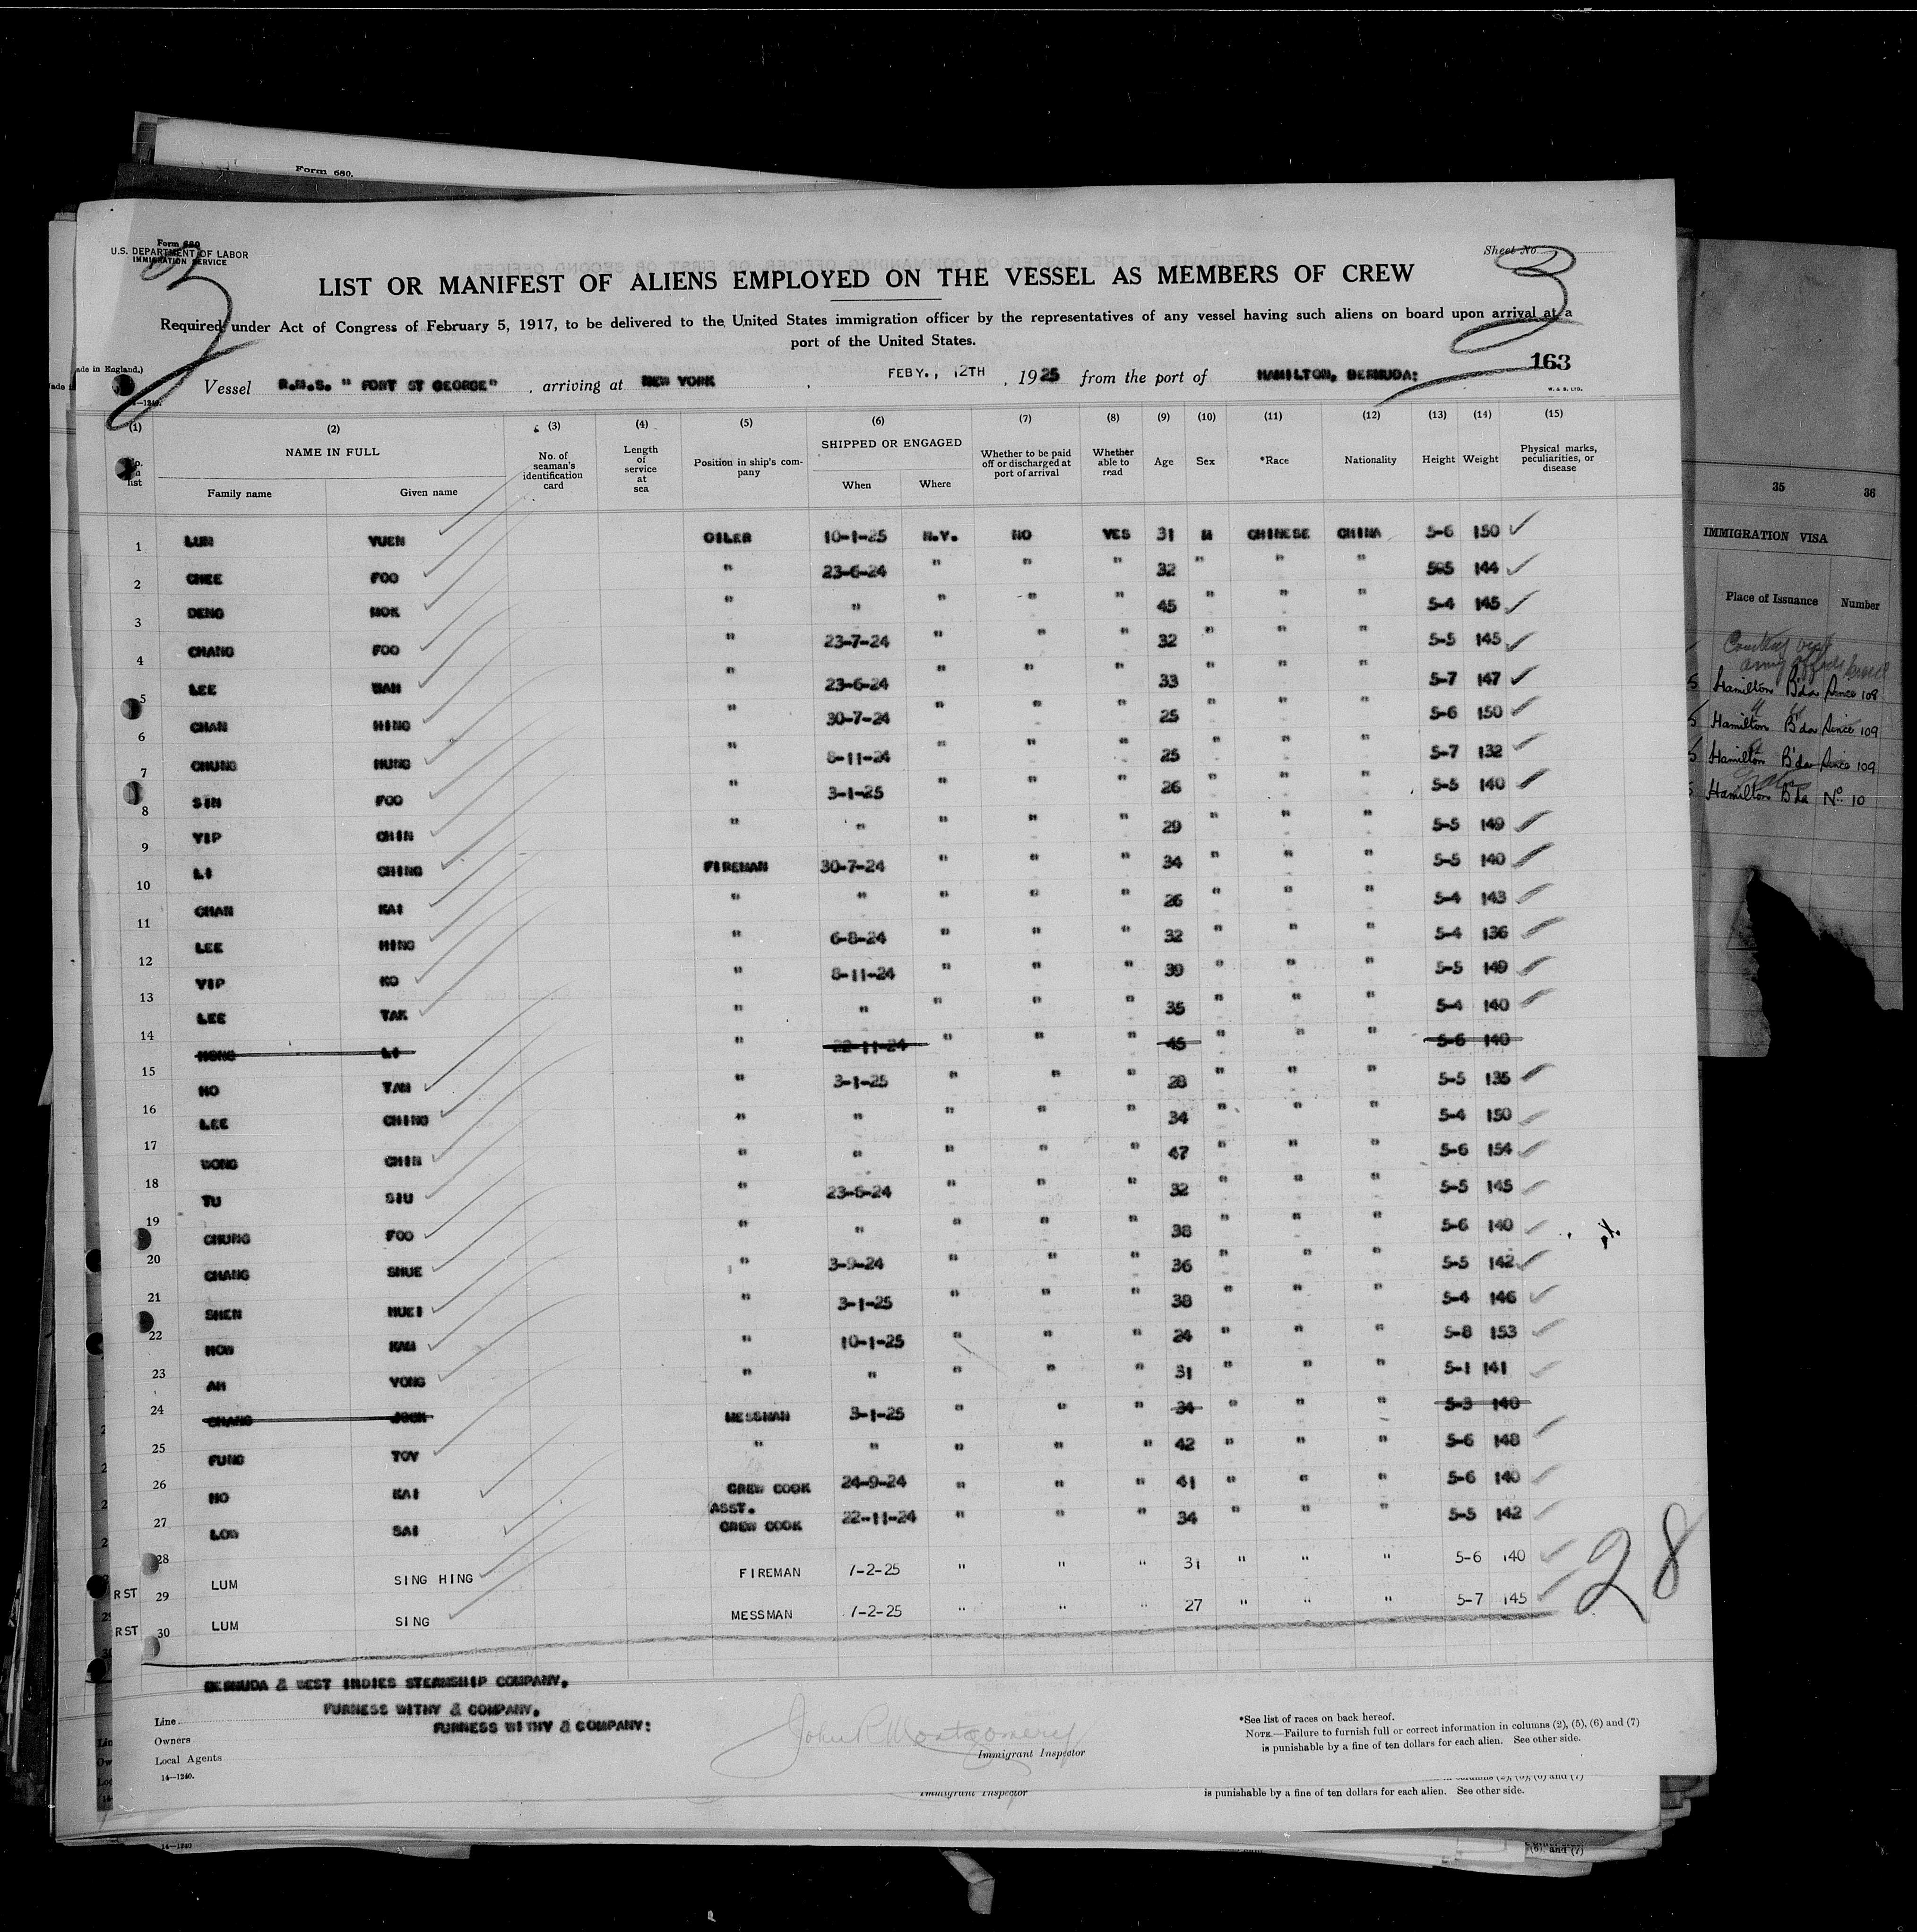 Form 680.
Form 680
U.S. DEPARTMENT OF LABOR
IMMIGRATION SERVICE
Sheet No. 3
LIST OR MANIFEST OF ALIENS EMPLOYED ON THE VESSEL AS MEMBERS OF CREW
Required under Act of Congress of February 5, 1917, to be delivered to the United States immigration officer by the representatives of any vessel having such aliens on board upon arrival at a
port of the United States.
163
Vessel R.M.S. " FORT ST GEORGE" , arriving at NEW YORK , FEBY., 12TH , 1925 from the port of HAMILTON, BERMUDA:
W. & S. LTD.
(1) (2) (3) (4) (5) (6) (7) (8) (9) (10) (11) (12) (13) (14) (15)
No. on list NAME IN FULL Family name Given name No. of seaman's identification card Length of service at sea Position in ship's company SHIPPED OR ENGAGED When Where Whether to be paid off or discharged at port of arrival Whether able to read Age Sex *Race Nationality Height Weight Physical marks, peculiarities, or disease
1 LUM YUEN OILER 10-1-25 N.Y. NO YES 31 M CHINESE CHINA 5-6 150
2 CHEE FOO " 23-6-24 " " " 32 " " " 585 144
3 DENG MOK " " " " " 45 " " " 5-4 145
4 CHANG FOO " 23-7-24 " " " 32 " " " 5-5 145
5 LEE WAH " 23-6-24 " " " 33 " " " 5-7 147
6 CHAN HING " 30-7-24 " " " 25 " " " 5-6 150
7 CHUNG HUNG " 8-11-24 " " " 25 " " " 5-7 132
8 SIN FOO " 3-1-25 " " " 26 " " " 5-5 140
9 YIP CHIN " " " " " 29 " " " 5-5 149
10 LI CHING FIREMAN 30-7-24 " " " 34 " " " 5-5 140
11 CHAN KAI " " " " " 26 " " " 5-4 143
12 LEE HING " 6-8-24 " " " 32 " " " 5-4 136
13 YIP KO " 8-11-24 " " " 39 " " " 5-5 149
14 LEE TAK " " " " " 35 " " " 5-4 140
15 HONG LI " 22-11-24 " " " 45 " " " 5-6 140
16 HO TAN " 3-1-25 " " " 28 " " " 5-5 135
17 LEE CHING " " " " " 34 " " " 5-4 150
18 WONG CHIN " " " " " 47 " " " 5-6 154
19 TU SIU " 23-6-24 " " " 32 " " " 5-5 145
20 CHUNG FOO " " " " " 38 " " " 5-6 140
21 CHANG SHUE " 3-9-24 " " " 36 " " " 5-5 142
22 SHEN HUEI " 3-1-25 " " " 38 " " " 5-4 146
23 HOW KAM " 10-1-25 " " " 24 " " " 5-8 153
24 AH YONG " " " " " 31 " " " 5-1 141
25 CHANG MESSMAN 3-1-25 " " " 34 " " " 5-3 140
26 FUNG TOY " " " " " 42 " " " 5-6 148
27 HO KAI CREW COOK 24-9-24 " " " 41 " " " 5-6 140
28 LOW SAI ASST. CREW COOK 22-11-24 " " " 34 " " " 5-5 142
RST 29 LUM SING HING FIREMAN 7-2-25 " " " 31 " " " 5-6 140
RST 30 LUM SING MESSMAN 7-2-25 " " " 27 " " " 5-7 145
28
BERMUDA & WEST INDIES STEAMSHIP COMPANY,
Line FURNESS WITHY & COMPANY,
Owners FURNESS WITHY & COMPANY:
Local Agents
14—1240.
John R Montgomery
Immigrant Inspector
*See list of races on back hereof.
NOTE.—Failure to furnish full or correct information in columns (2), (5), (6) and (7)
is punishable by a fine of ten dollars for each alien. See other side.
Immigrant Inspector
is punishable by a fine of ten dollars for each alien. See other side.
14—1240
(6), and (7)
35 36
IMMIGRATION VISA
Place of Issuance Number
Hamilton B'da Since 108
Hamilton B'da Since 109
Hamilton B'da Since 109
Hamilton B'da No. 10